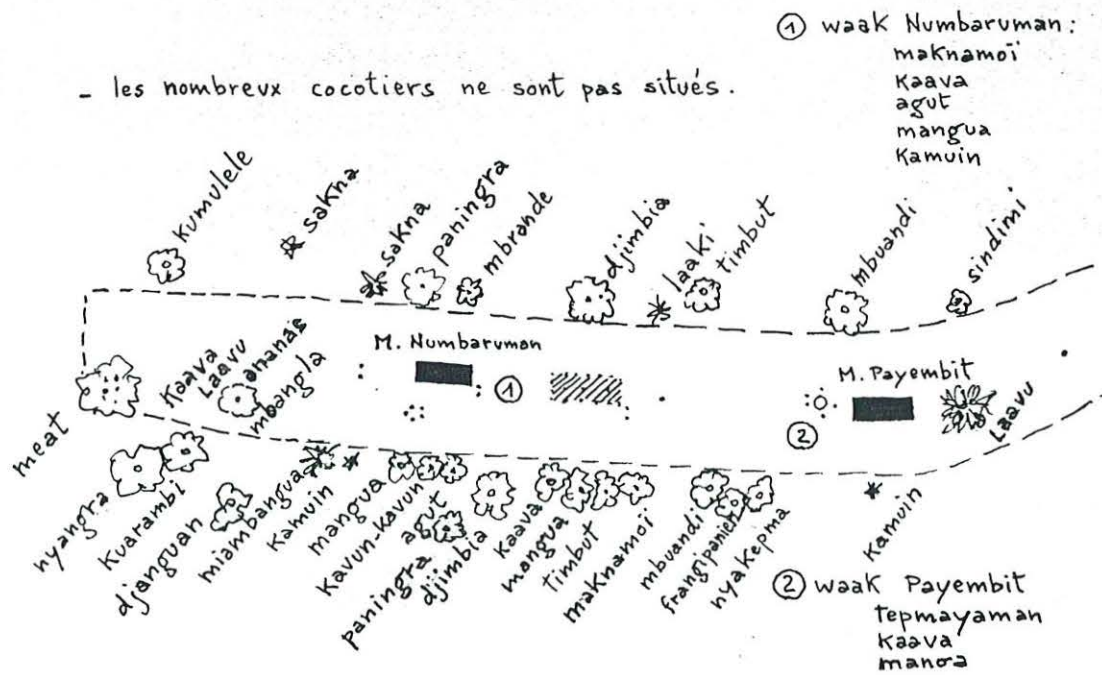 ① waak Numbaruman:
maknamoï
kaava
agut
mangua
kamuin
- les nombreux cocotiers ne sont pas situés.
kumulele
sakna
sakna
paningra
mbrande
djimbia
laaki
timbut
mbuandi
sindimi
M. Numbaruman
①
M. Payembit
②
meat
kaava
laavu
ananas
mbangla
laavu
nyangra
kuarambi
djanguan
miambangua
kamuin
mangua
kavun-kavun
agut
paningra
djimbia
kaava
mangua
timbut
maknamoï
mbuandi
frangipanier
nyakepma
kamuin
② waak Payembit
tepmayaman
kaava